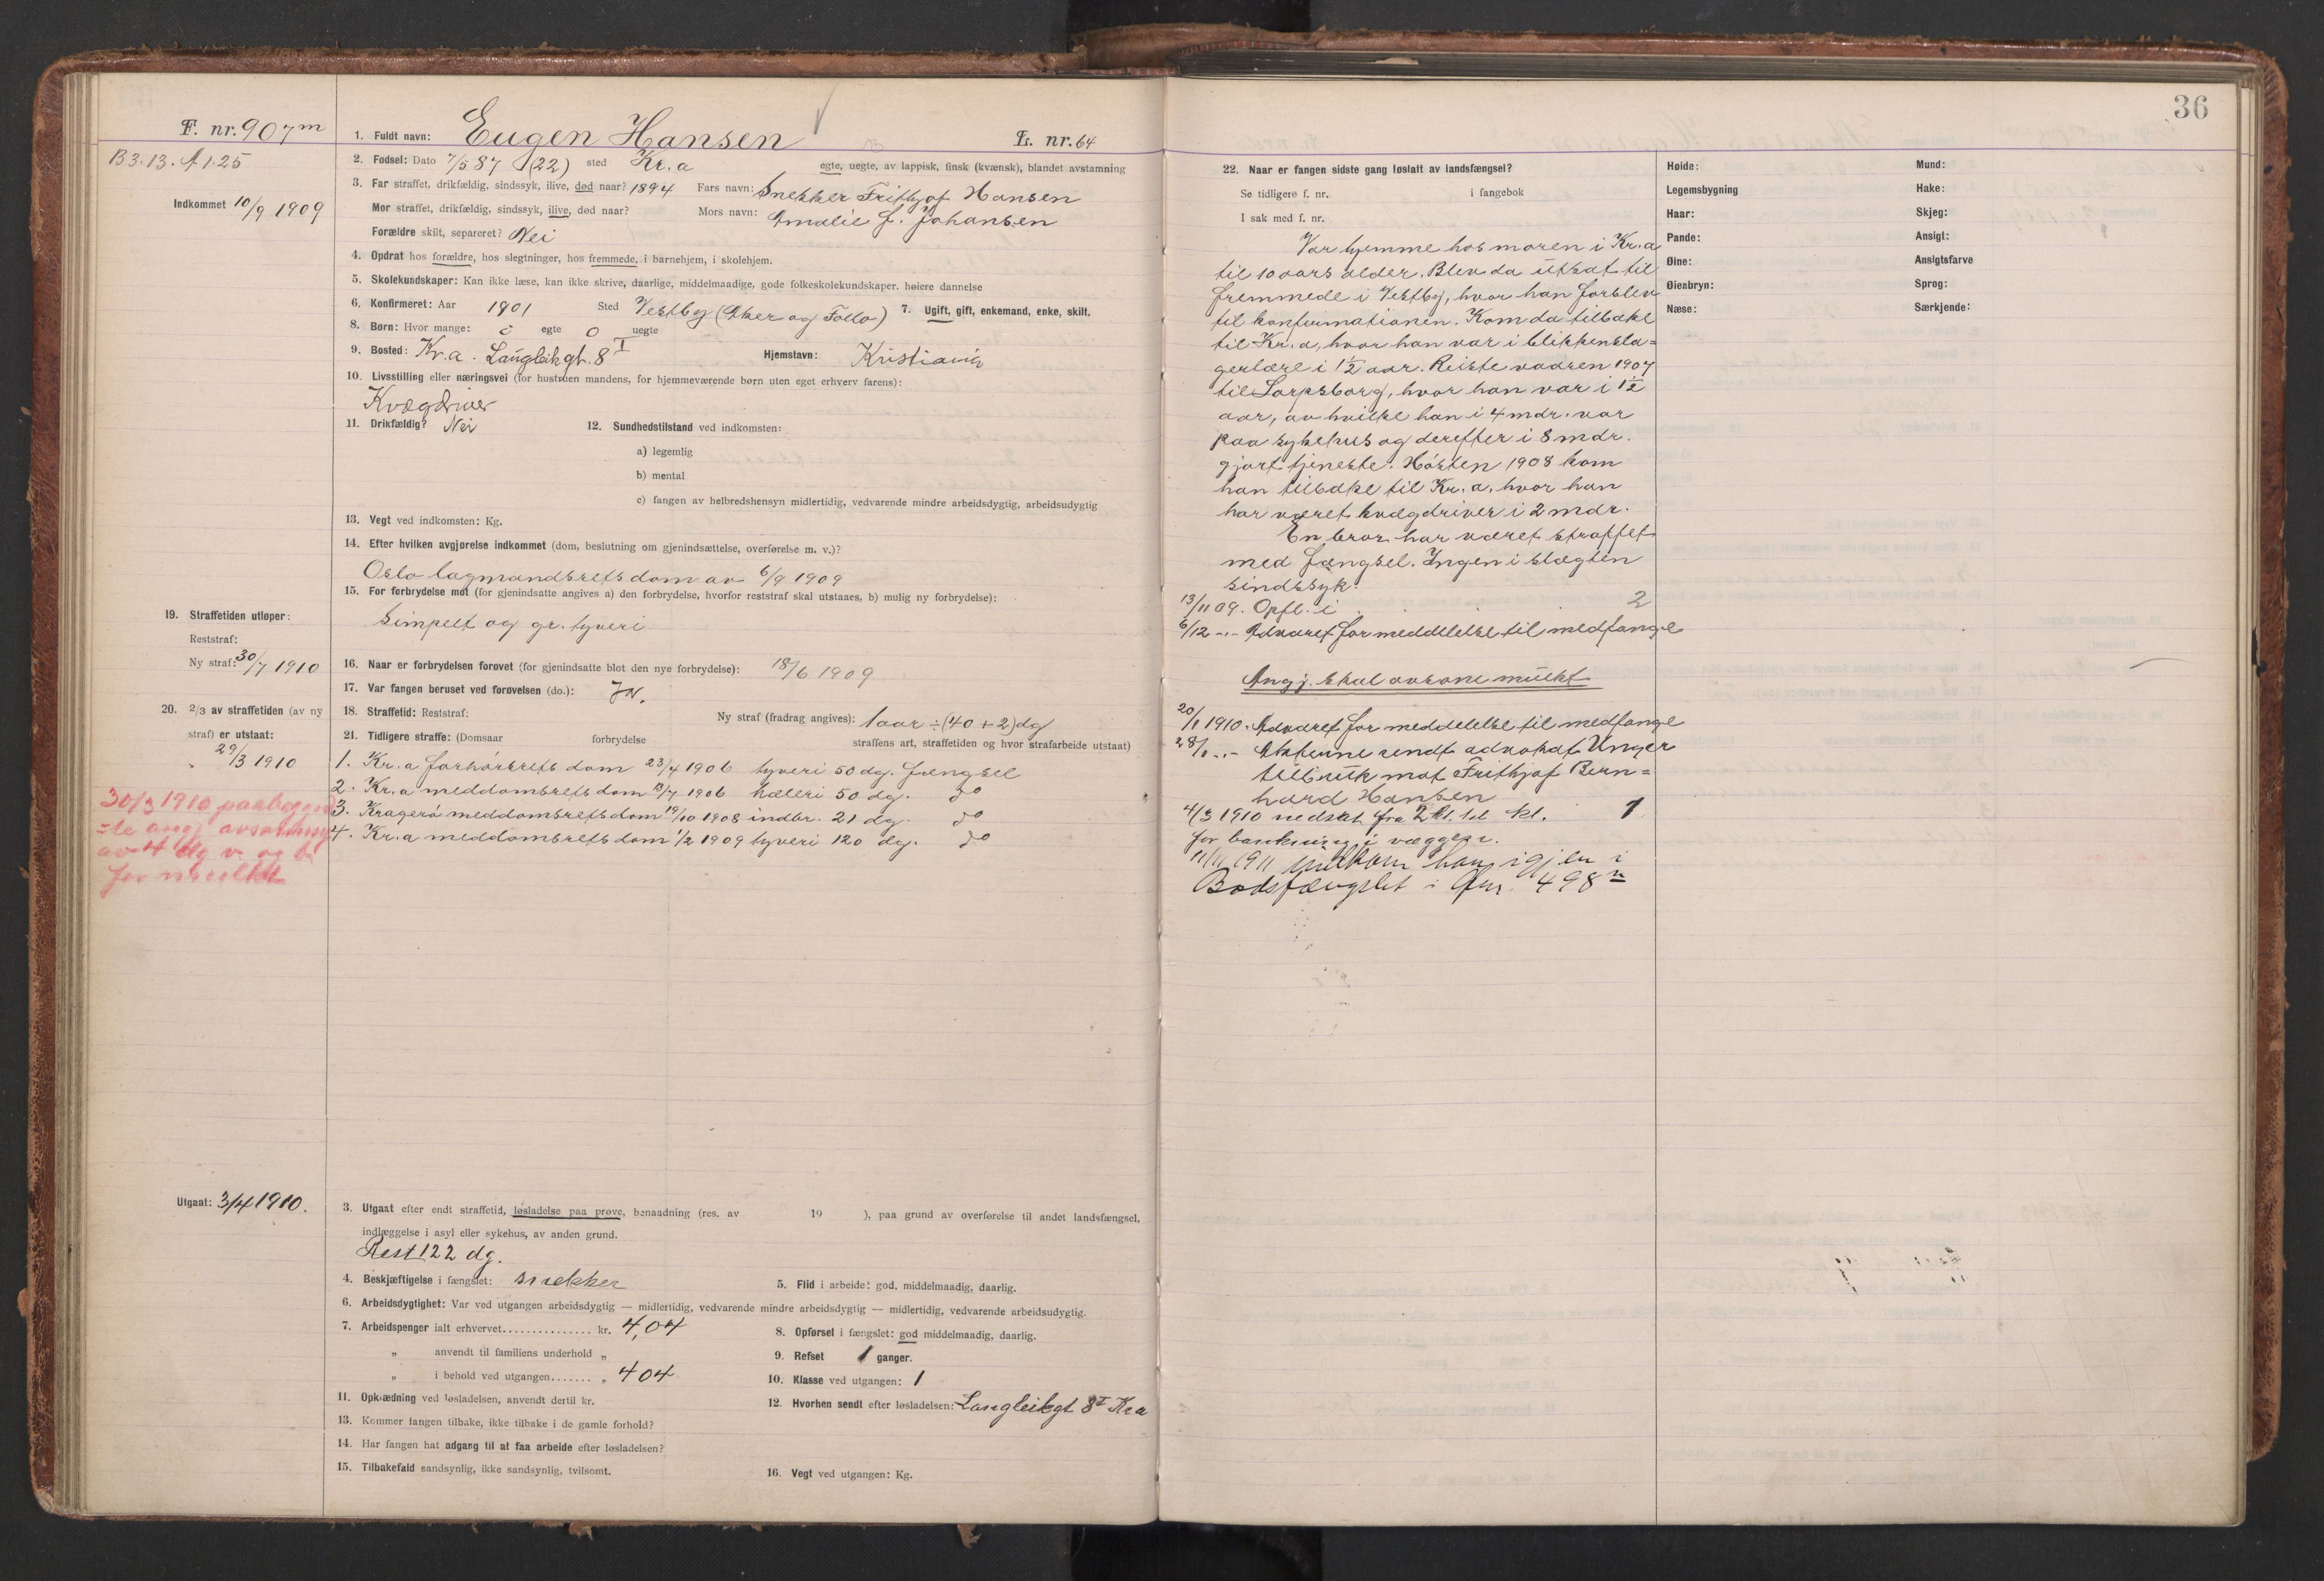 36
F. nr. 907 m
B 3. 13. A 1. 25
Indkommet 10/9 1909
1. Fuldt navn: Eugen Hansen L. nr. 64
2. Fødsel: Dato 7/5 87 (22) sted Kr.a egte, uegte, av lappisk, finsk (kvænsk), blandet avstamning
3. Far straffet, drikfældig, sindssyk, ilive, død naar? 1894 Fars navn: Snekker Frithjof Hansen
Mor straffet, drikfældig, sindssyk, ilive, død naar? Mors navn: Amalie f. Johansen
Forældre skilt, separeret? Nei
4. Opdrat hos forældre, hos slegtninger, hos fremmede, i barnehjem, i skolehjem.
5. Skolekundskaper: Kan ikke læse, kan ikke skrive, daarlige, middelmaadige, gode folkeskolekundskaper, høiere dannelse
6. Konfirmeret: Aar 1901 Sted Vestby (Aker og Follo) 7. Ugift, gift, enkemand, enke, skilt.
8. Børn: Hvor mange: egte 0 uegte
9. Bosted: Kr.a. Langleikgt. 8 I Hjemstavn: Kristiania
10. Livsstilling eller næringsvei (for hustruen mandens, for hjemmeværende børn uten eget erhverv farens):
Kvægdriver
11. Drikfældig? Nei 12. Sundhedstilstand ved indkomsten:
a) legemlig
b) mental
c) fangen av helbredshensyn midlertidig, vedvarende mindre arbeidsdygtig, arbeidsudygtig
13. Vegt ved indkomsten: Kg.
14. Efter hvilken avgjørelse indkommet (dom, beslutning om gjenindsættelse, overførelse m. v.)?
Oslo lagmandsrets dom av 6/9 1909
15. For forbrydelse mot (for gjenindsatte angives a) den forbrydelse, hvorfor reststraf skal utstaaes, b) mulig ny forbrydelse):
Simpelt og gr. tyveri
19. Straffetiden utløper:
Reststraf:
Ny straf: 30/7 1910
16. Naar er forbrydelsen forøvet (for gjenindsatte blot den nye forbrydelse): 18/6 1909
17. Var fangen beruset ved forøvelsen (do.): Ja.
20. 2/3 av straffetiden (av ny
straf) er utstaat:
29/3 1910
18. Straffetid: Reststraf: Ny straf (fradrag angives): 1 aar ÷ (40 + 2) dg
21. Tidligere straffe: (Domsaar forbrydelse straffens art, straffetiden og hvor strafarbeide utstaat)
1. Kr.a forhørsrets dom 23/4 1906 tyveri 50 dg. fængsel
2. Kr.a meddomsrets dom /7 1906 hæleri 50 dg. do
3. Kragerø meddomsrets dom 19/10 1908 indbr. 21 dg. do
4. Kr.a meddomsrets dom 1/2 1909 tyveri 120 dg. do
30/3 1910 paabegynd
=te angj avsoning
av 4 dg v. og b.
for mulkt
Utgaat: 3/4 1910.
3. Utgaat efter endt straffetid, løsladelse paa prøve, benaadning (res. av 19 ), paa grund av overførelse til andet landsfængsel,
indlæggelse i asyl eller sykehus, av anden grund.
Rest 122 dg.
4. Beskjæftigelse i fængslet: snekker 5. Flid i arbeide: god, middelmaadig, daarlig.
6. Arbeidsdygtighet: Var ved utgangen arbeidsdygtig — midlertidig, vedvarende mindre arbeidsdygtig — midlertidig, vedvarende arbeidsudygtig.
7. Arbeidspenger ialt erhvervet............... kr. 4,04 8. Opførsel i fængslet: god middelmaadig, daarlig.
„ anvendt til familiens underhold „ 9. Refset 1 ganger.
„ i behold ved utgangen....... „ 404 10. Klasse ved utgangen: 1
11. Opklædning ved løsladelsen, anvendt dertil kr. 12. Hvorhen sendt efter løsladelsen: Langleikgt 8 I Kra
13. Kommer fangen tilbake, ikke tilbake i de gamle forhold?
14. Har fangen hat adgang til at faa arbeide efter løsladelsen?
15. Tilbakefald sandsynlig, ikke sandsynlig, tvilsomt. 16. Vegt ved utgangen: Kg.
22. Naar er fangen sidste gang løslatt av landsfængsel?
Se tidligere f. nr. i fangebok
I sak med f. nr.
Var hjemme hos moren i Kr.a
til 10 aars alder. Blev da utsat til
fremmede i Vestby, hvor han forblev
til konfirmationen. Kom da tilbake
til Kr.a, hvor han var i blikkensla=
gerlære i 1½ aar. Reiste vaaren 1907
til Sarpsborg, hvor han var i 1½
aar, av hvilke han i 4 mdr. var
paa sykehus og derefter i 8 mdr.
gjort tjeneste. Høsten 1908 kom
han tilbake til Kr.a, hvor han
har været kvægdriver i 2 mdr.
En bror har været straffet
med fængsel. Ingen i slægten
sindssyk.
13/11 09. Opfl. i 2
6/12 -.- Advaret for meddelelse til medfange
Angj. skal avsone mulkt
20/1 1910. Advaret for meddelelse til medfange
28/1 -.- Akterne sendt advokat Unger
til bruk mot Frithjof Bern=
hard Hansen
4/3 1910 nedsat fra 2 kl. til kl. 1
for bankning i væggen.
11/11 1911 indkom han igjen i
Bodsfængslet i fnr. 498 n
Høide: Mund:
Legemsbygning Hake:
Haar: Skjeg:
Pande: Ansigt:
Øine: Ansigtsfarve
Øienbryn: Sprog:
Næse: Særkjende: